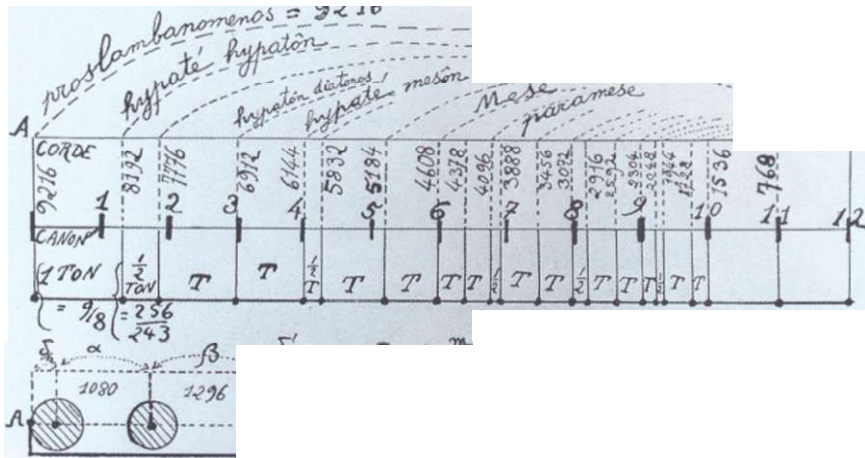 proslambanomenos = 9216
hypaté hypatôn
hypatón diatonos
hypaté mesôn
Mese
paramese
A CORDE
9216 8192 7776 6912 6144 5832 5184 4608 4378 4096 3888 3456 3072 2916 2592 2304 2048 1944 1728 1536 768
1 2 3 4 5 6 7 8 9 10 11 12
CANON
1 TON 1/2 TON T T 1/2 T T T T T 1/2 T T 1/2 T T T 1/2 T T
= 9/8 = 256/243
α β
1080 1296
A